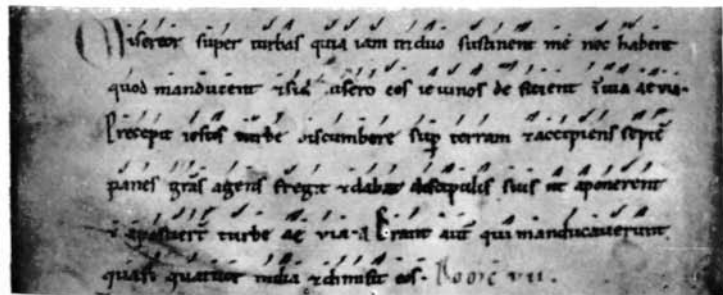 Misereor super turbas quia iam triduo sustinent me nec habent
quod manducent & si dimisero eos ieiunos deficient in uia aeuia.
Precepit iesus turbe discumbere sup terram & accipiens septē
panes gr̄as agens fregit & dabat discipulis suis ut aponerent
& aposuert̄ turbe ae via. a Erant aut̄ qui manducauerunt
quasi quatuor milia & dimisit eos. vii.